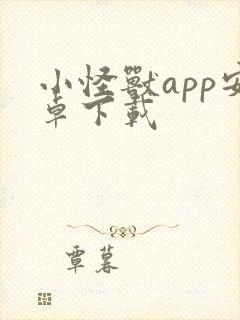 小怪獸app安
卓下載
覃暮